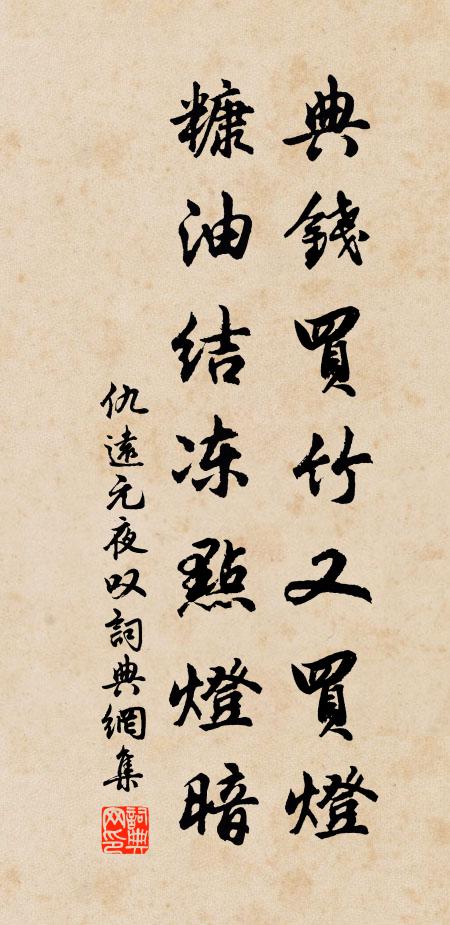 典錢買竹又買燈
糠油结冻點燈暗
仇遠元夜叹詞典網集
詞典網印